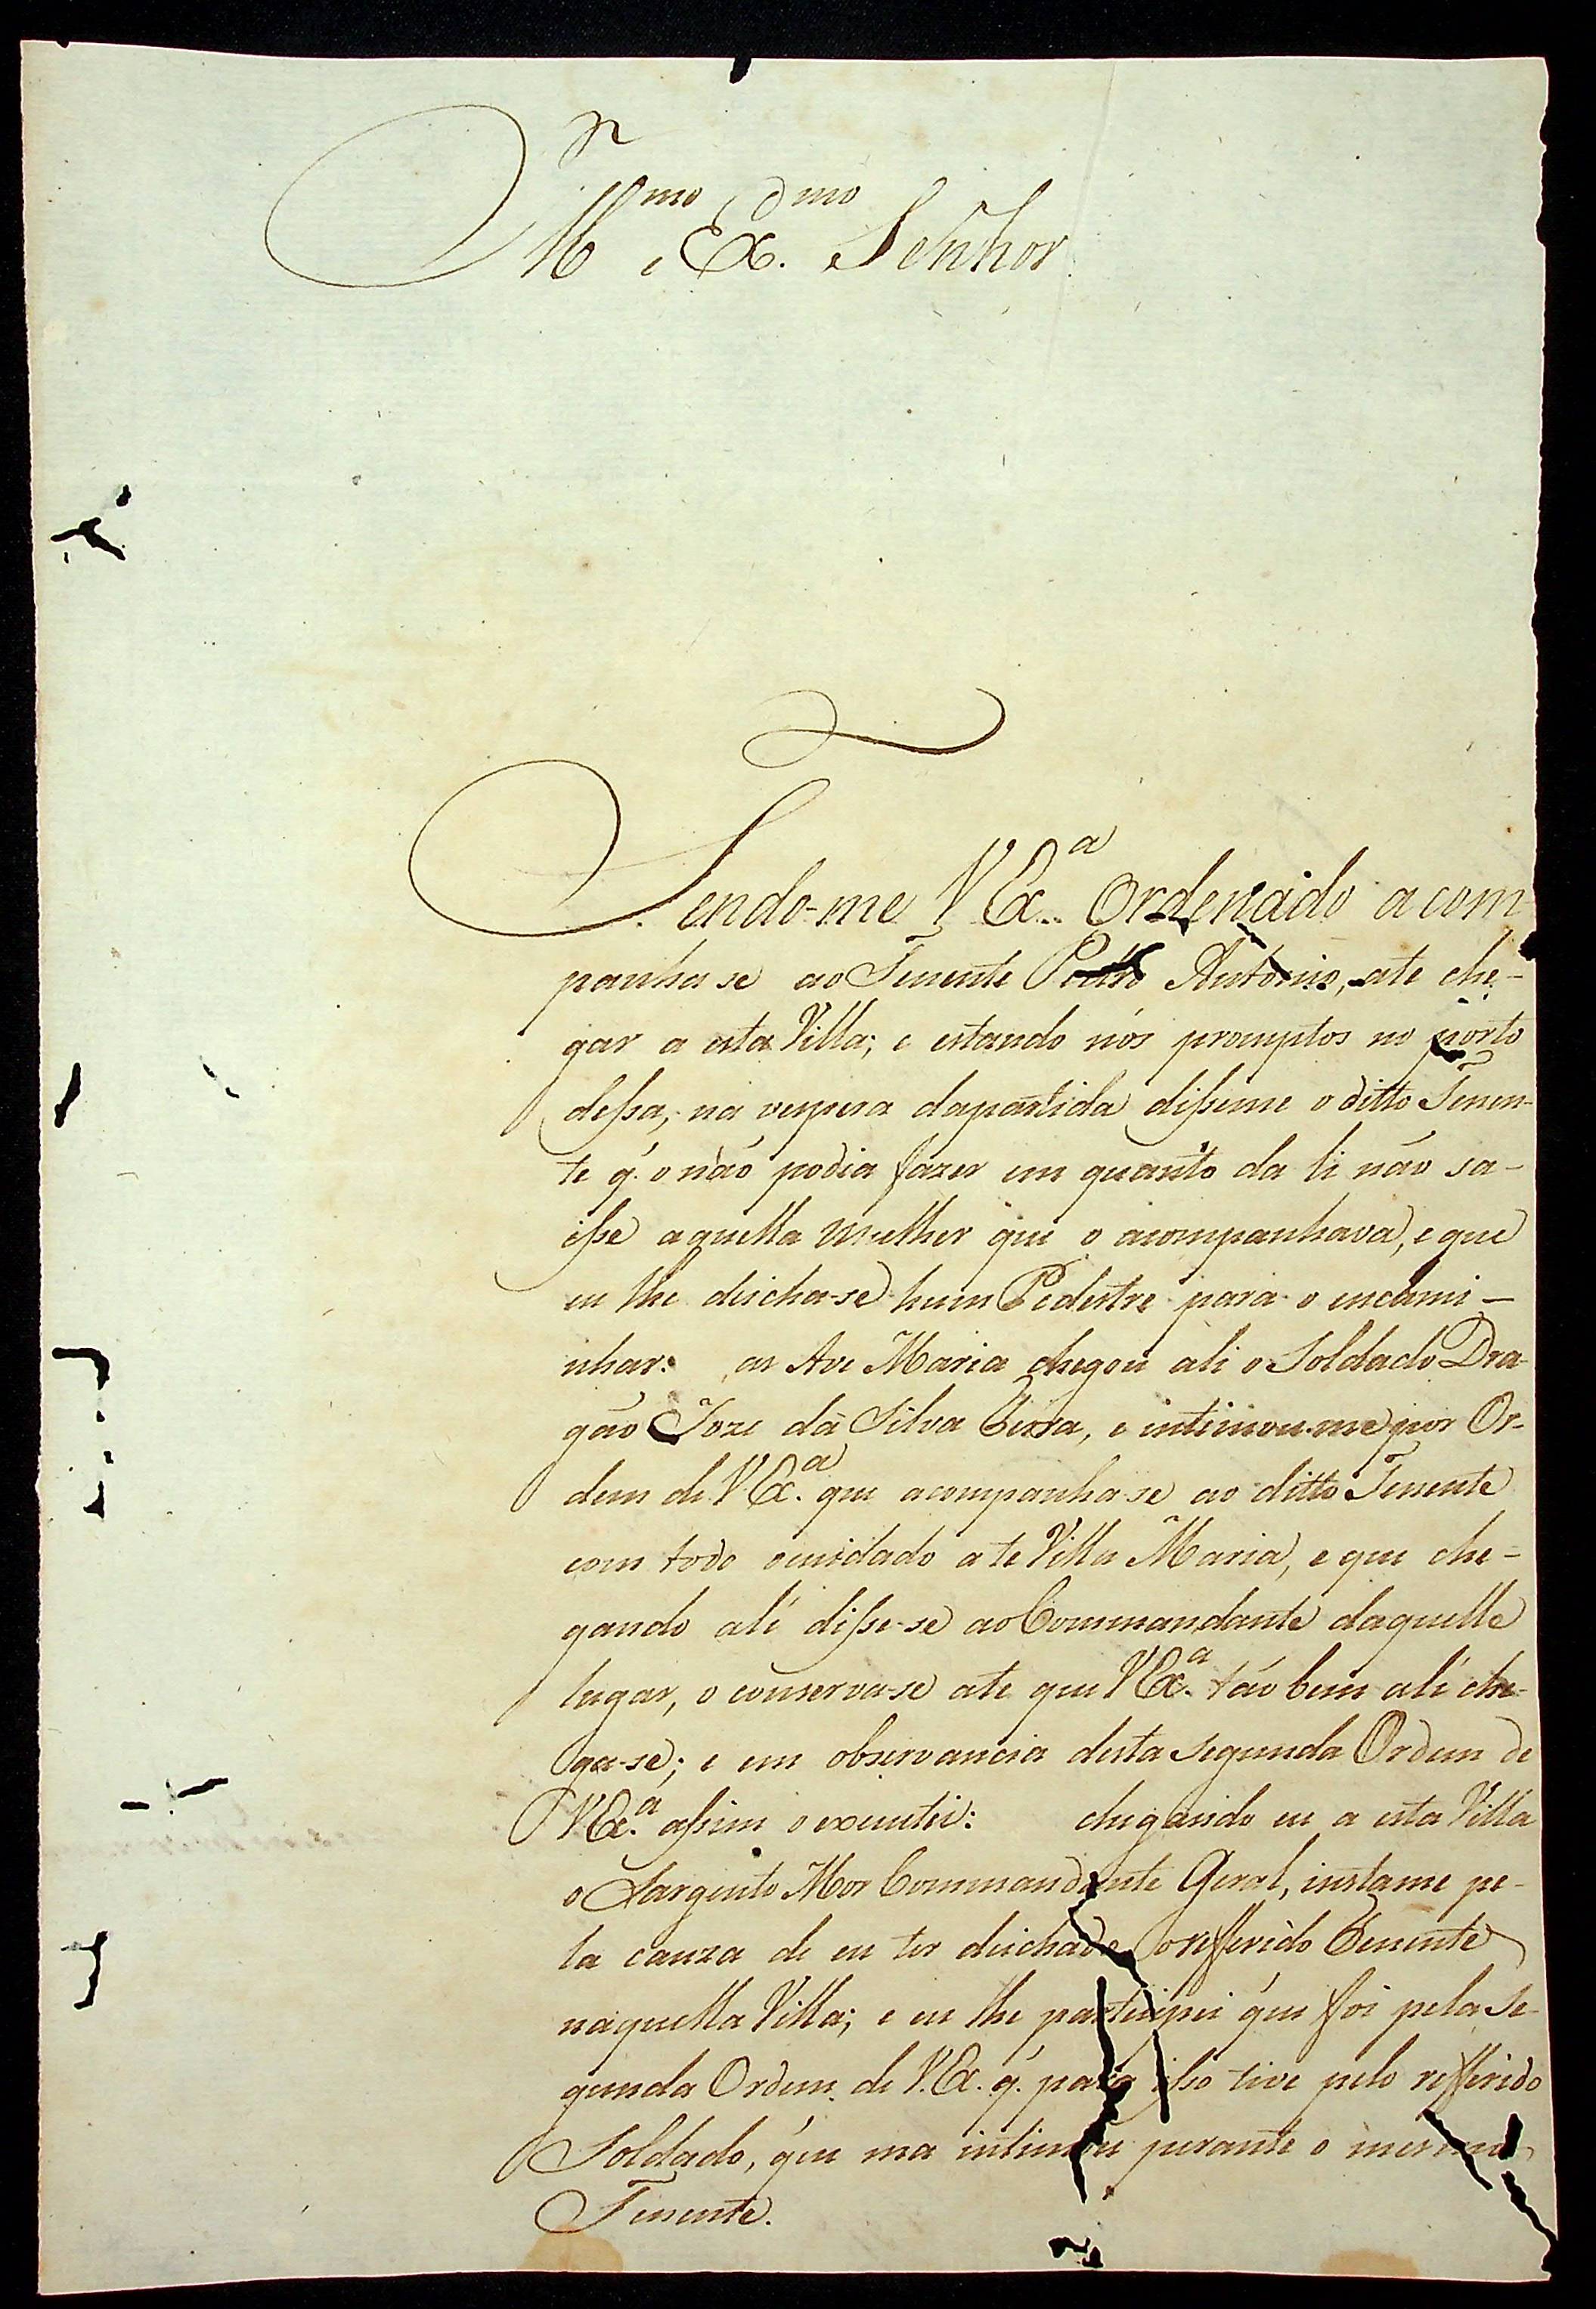 Ill.mo e Ex.mo Senhor
Tendo-me V Ex.a Ordenado acom-
panha se ao Tenente Pedro Antonio, ate che-
gar a esta Villa; e estando nós promptos no porto
dessa, na vespera dapartida disseme o ditto Tenen-
te q̃. o não podia fazer em quanto da li não sa-
isse aquella mulher que o acompanhava, e que
eu lhe deicha-se hum Pedestre para o encami-
nhar: as Ave Maria chegou ali o Soldado Dra-
gão Joze da Silva Terra, e intimou-me por Or-
dem de V. Ex.a que acompanha-se ao ditto Tenente
com todo ocuidado ate Villa Maria, e que che-
gando alí disse-se ao Commandante daquelle
lugar, o conserva-se ate que V Ex.a táo bem alí che-
ga-se; e em observancia desta segunda Ordem de
V Ex.a assim o executei: chegando eu a esta Villa
o Sargento Mor Commandante Geral, instame pe-
la cauza de eu ter deichado o refferido Tenente
naquella Villa; e eu lhe participei que foi pela Se-
gunda Ordem de V. Ex. q̃. para isso tive pelo refferido
Soldado, que ma intimou perante o mesmo
Tenente.